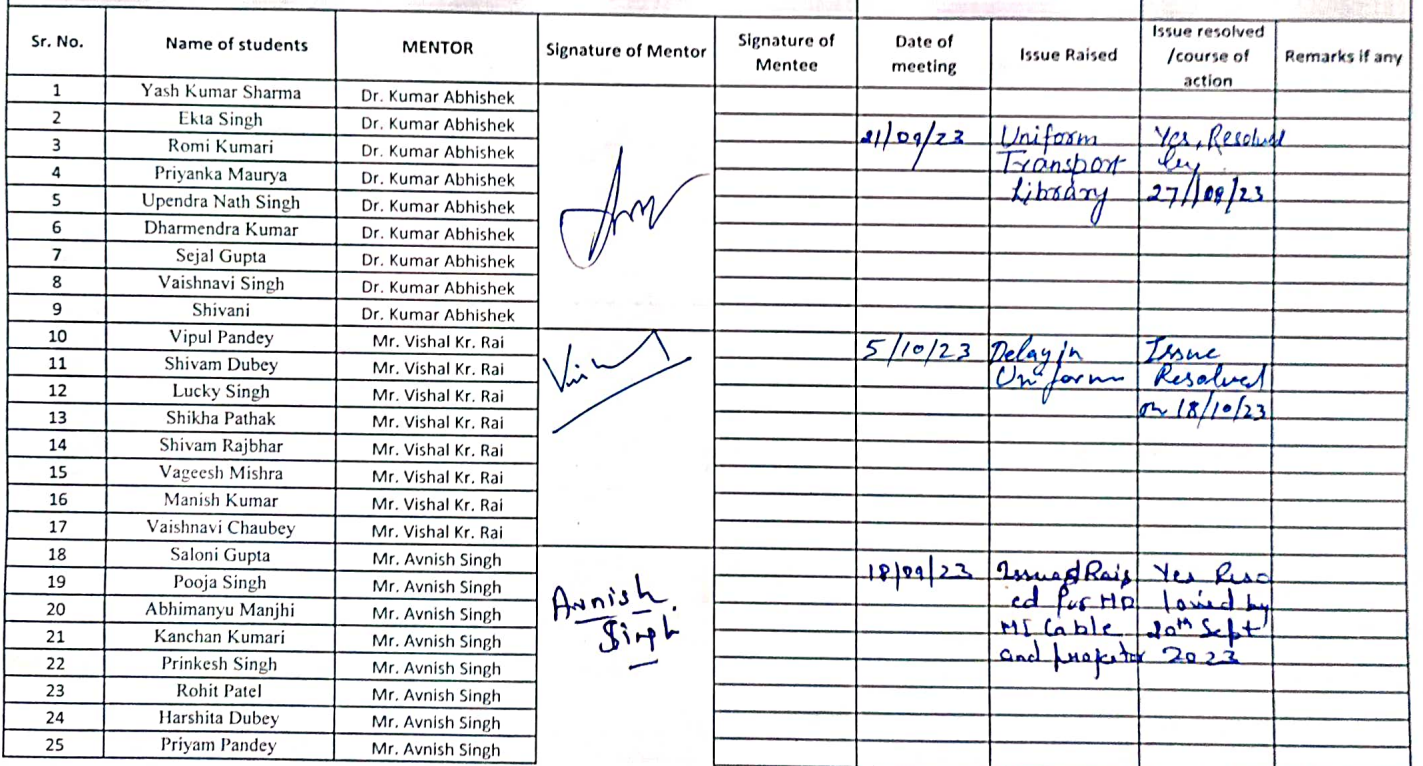 Sr. No. Name of students MENTOR Signature of Mentor Signature of Mentee Date of meeting Issue Raised Issue resolved /course of action Remarks if any
1 Yash Kumar Sharma Dr. Kumar Abhishek
2 Ekta Singh Dr. Kumar Abhishek
3 Romi Kumari Dr. Kumar Abhishek 21/09/23 Uniform Yes, Resolved
4 Priyanka Maurya Dr. Kumar Abhishek Transport by
5 Upendra Nath Singh Dr. Kumar Abhishek Library 27/09/23
6 Dharmendra Kumar Dr. Kumar Abhishek
7 Sejal Gupta Dr. Kumar Abhishek
8 Vaishnavi Singh Dr. Kumar Abhishek
9 Shivani Dr. Kumar Abhishek
10 Vipul Pandey Mr. Vishal Kr. Rai 5/10/23 Delay in Issue
11 Shivam Dubey Mr. Vishal Kr. Rai Uniform Resolved
12 Lucky Singh Mr. Vishal Kr. Rai on 18/10/23
13 Shikha Pathak Mr. Vishal Kr. Rai
14 Shivam Rajbhar Mr. Vishal Kr. Rai
15 Vageesh Mishra Mr. Vishal Kr. Rai
16 Manish Kumar Mr. Vishal Kr. Rai
17 Vaishnavi Chaubey Mr. Vishal Kr. Rai
18 Saloni Gupta Mr. Avnish Singh 18/09/23 Issued Rais Yes Reso
19 Pooja Singh Mr. Avnish Singh Avnish ed for HD lved by
20 Abhimanyu Manjhi Mr. Avnish Singh Singh MI Cable 20th Sept
21 Kanchan Kumari Mr. Avnish Singh and projector 2023
22 Prinkesh Singh Mr. Avnish Singh
23 Rohit Patel Mr. Avnish Singh
24 Harshita Dubey Mr. Avnish Singh
25 Priyam Pandey Mr. Avnish Singh